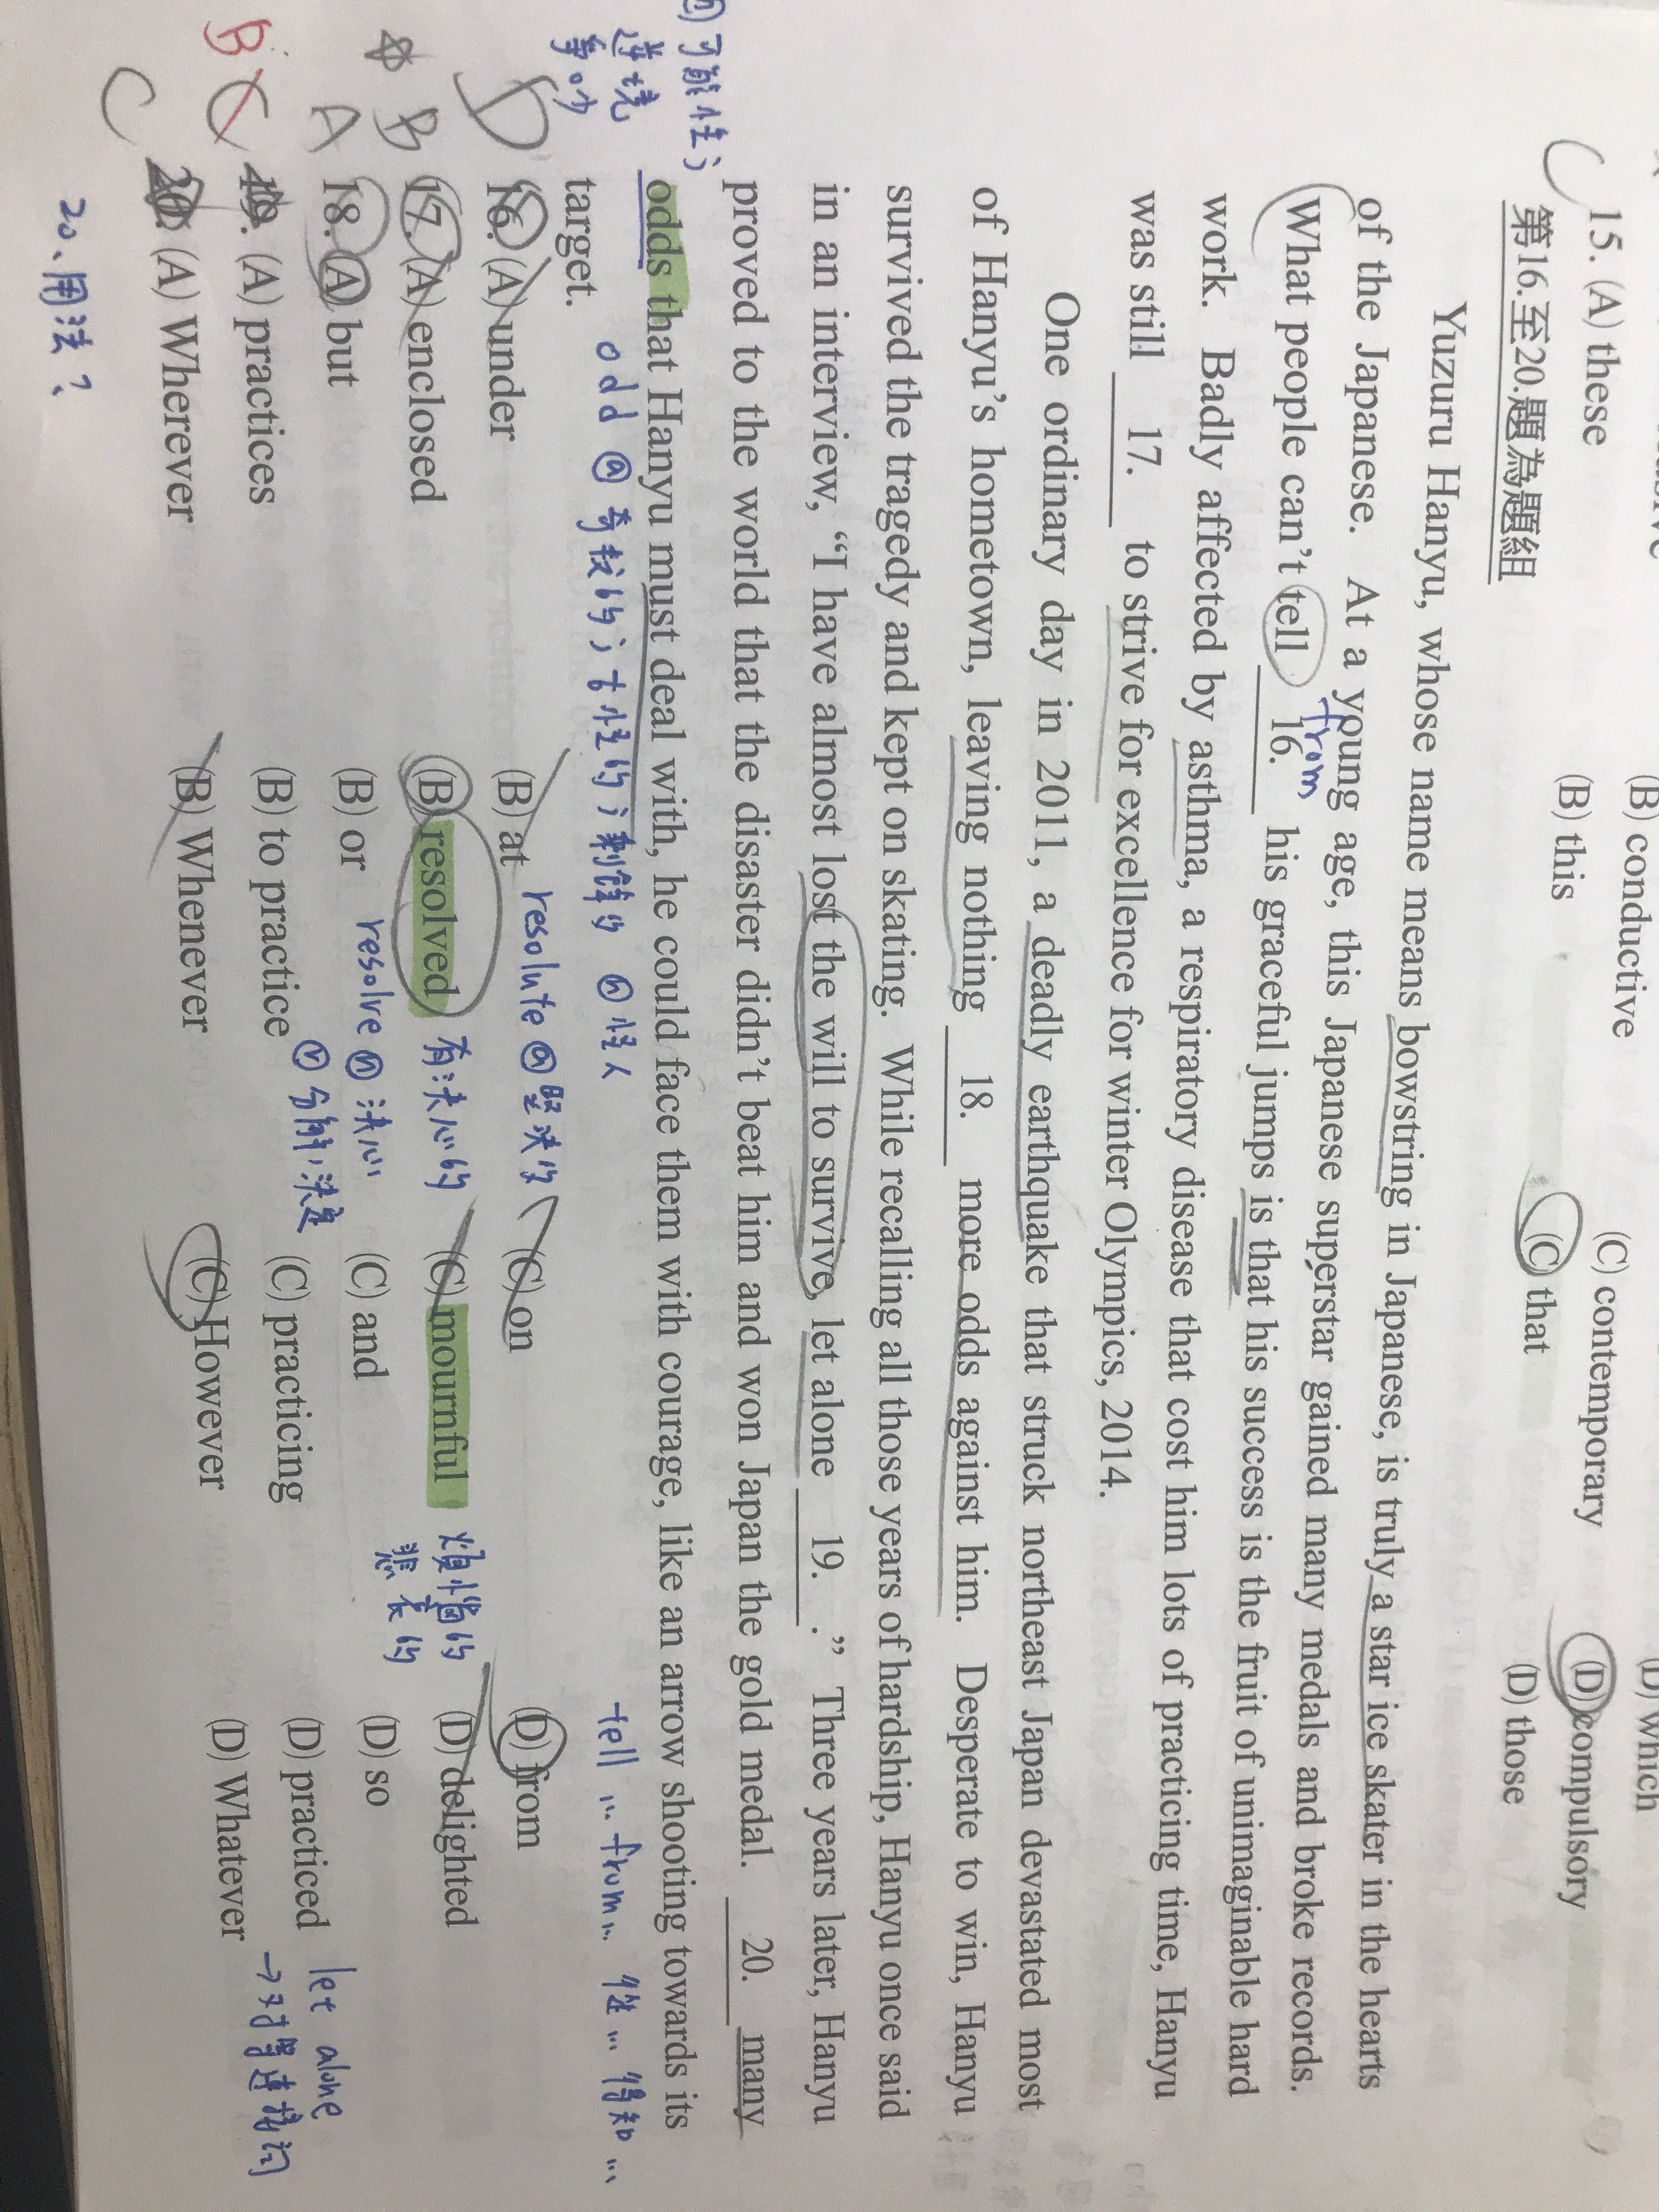 (B) conductive
(D) which
15. (A) these
(B) this
(C) contemporary
(C) that
(D) compulsory
(D) those
第16.至20.題為題組
Yuzuru Hanyu, whose name means bowstring in Japanese, is truly a star ice skater in the hearts
of the Japanese. At a young age, this Japanese superstar gained many medals and broke records.
from
What people can't tell 16. his graceful jumps is that his success is the fruit of unimaginable hard
work. Badly affected by asthma, a respiratory disease that cost him lots of practicing time, Hanyu
was still 17. to strive for excellence for winter Olympics, 2014.
One ordinary day in 2011, a deadly earthquake that struck northeast Japan devastated most
of Hanyu's hometown, leaving nothing 18. more odds against him. Desperate to win, Hanyu
survived the tragedy and kept on skating. While recalling all those years of hardship, Hanyu once said
in an interview, “I have almost lost the will to survive, let alone 19. .” Three years later, Hanyu
proved to the world that the disaster didn't beat him and won Japan the gold medal. 20. many
odds that Hanyu must deal with, he could face them with courage, like an arrow shooting towards its
target.
ⓝ 可能性；
逆境
odd ⓐ 奇数的；古怪的；剩餘的 ⓝ 怪人
tell … from … 從 … 得知 …
D 16. (A) under (B) at (C) on (D) from
resolute ⓐ 堅決的
B 17. (A) enclosed (B) resolved 有決心的 (C) mournful (D) delighted
resolve ⓝ 決心
ⓥ 分解，決定
悲哀的
A 18. (A) but (B) or (C) and (D) so
B C 19. (A) practices (B) to practice (C) practicing (D) practiced
let alone
→ 對等連接詞
C 20. (A) Wherever (B) Whenever (C) However (D) Whatever
20、用法？